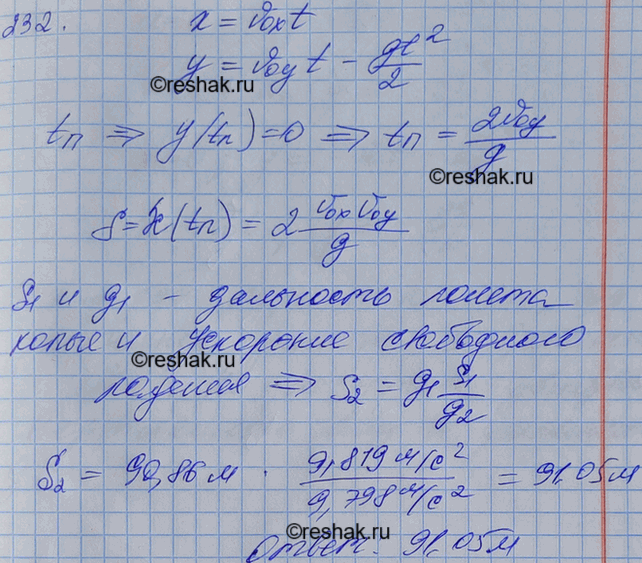 232.
x = v₀ₓt
y = v₀ᵧt − gt²/2
©reshak.ru
tп ⇒ y(tп)=0 ⇒ tп = 2v₀ᵧ/g
©reshak.ru
S = x(tп) = 2 v₀ₓv₀ᵧ/g
S₁ и g₁ - дальность полета
копья и ускорение свободного
©reshak.ru
падения ⇒ S₂ = g₁ S₁/g₂
S₂ = 90,86 м · 9,819 м/с²/9,798 м/с² = 91,05 м
©reshak.ru
Ответ: 91,05 м